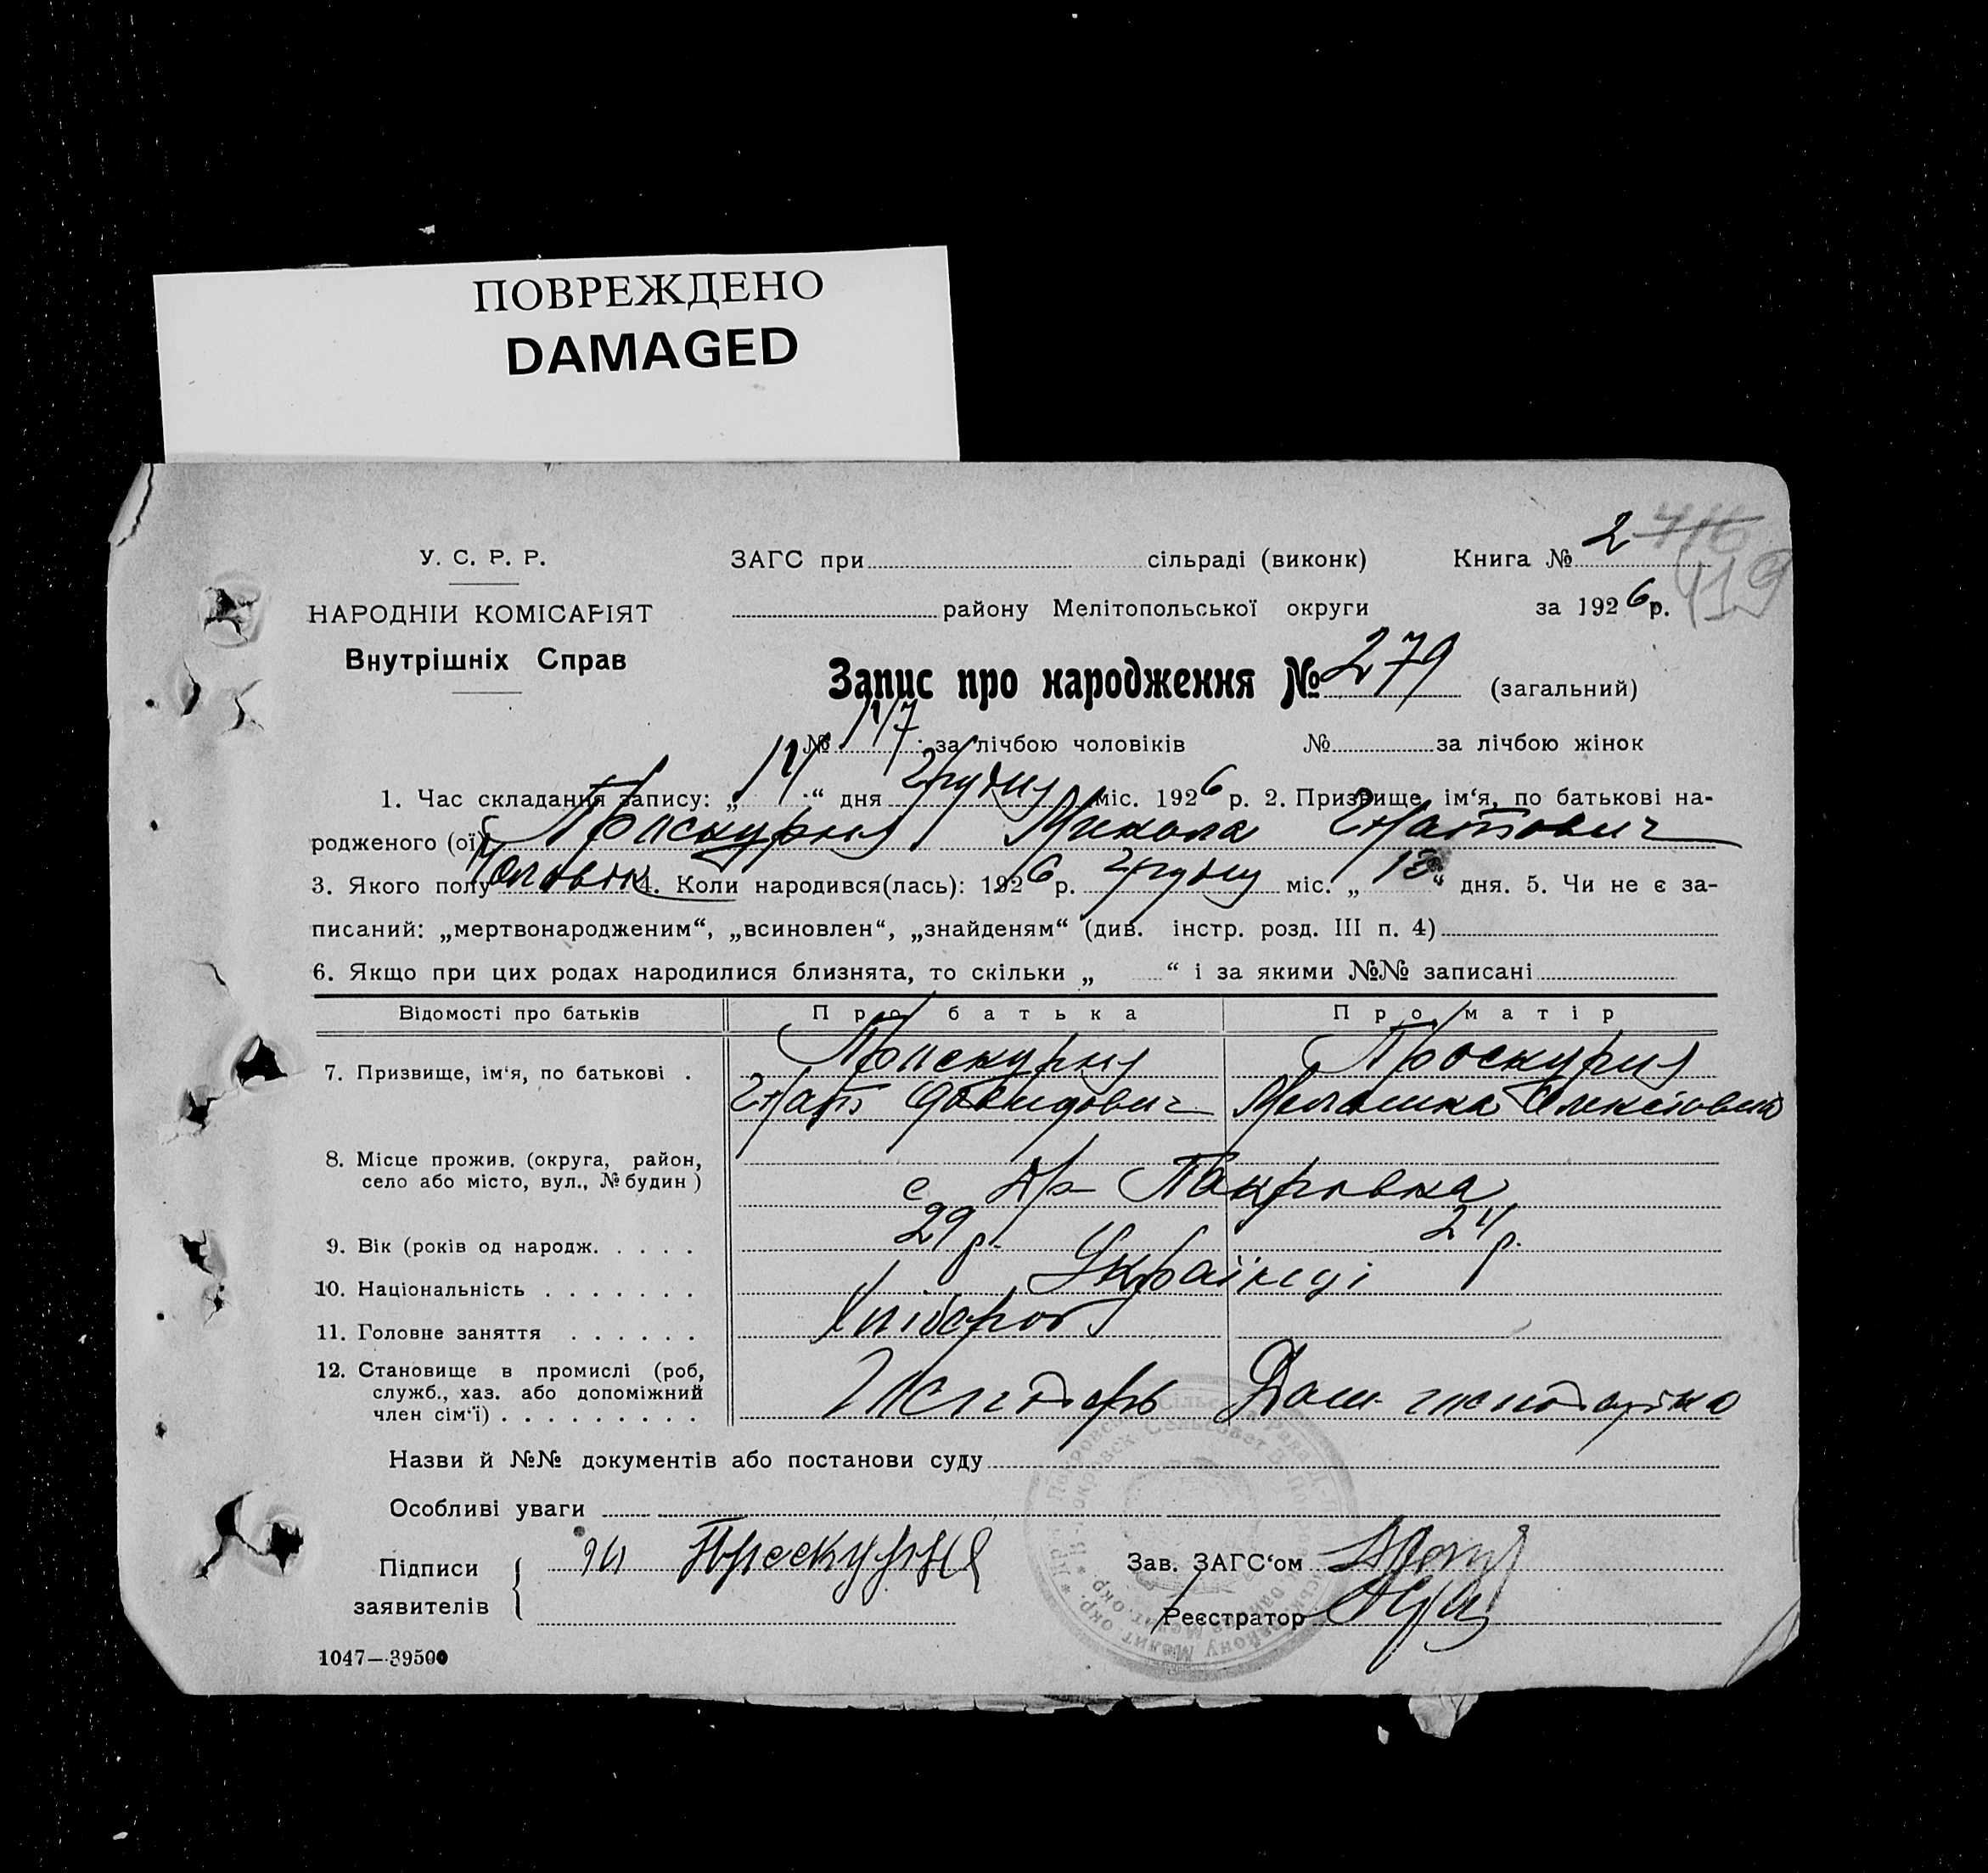 ПОВРЕЖДЕНО
DAMAGED
У. С. Р. Р.
НАРОДНІИ КОМІСАРІЯТ
Внутрішніх Справ
ЗАГС при сільраді (виконк) Книга № 2 716
119
району Мелітопольської округи за 1926 р.
Запис про народження № 279 (загальний)
№ 117 за лічбою чоловіків № за лічбою жінок
1. Час складання запису: „ “ дня Грудня міс. 1926 р. 2. Призвище, ім‘я, по батькові на-
родженого (ої) Проскурня Микола Гнатович
3. Якого полу Чоловік 4. Коли народився(лась): 1926 р. Грудня міс. „ “ дня. 5. Чи не є за-
писаний: „мертвонародженим“, „всиновлен“, „знайденям“ (див. інстр. розд. III п. 4)
6. Якщо при цих родах народилися близнята, то скільки „ “ і за якими №№ записані
Відомості про батьків Про батька Про матір
7. Призвище, ім‘я, по батькові . Проскурня Проскурня
Гнат Давидович Мелашка Олексіовна
8. Місце прожив. (округа, район,
село або місто, вул., № будин) с Покровка
9. Вік (років од народж. . . . . 29 р. р.
10. Національність . . . . . . . Українці
11. Головне заняття . . . . . . Хлібороб
12. Становище в промислі (роб,
служб., хаз. або допоміжний
член сім‘ї) . . . . . . . . . Господарь Дом. господарка
Назви й №№ документів або постанови суду
Особливі уваги
Підписи
заявителів
Проскурня
Зав. ЗАГС‘ом
Реєстратор
1047—39500